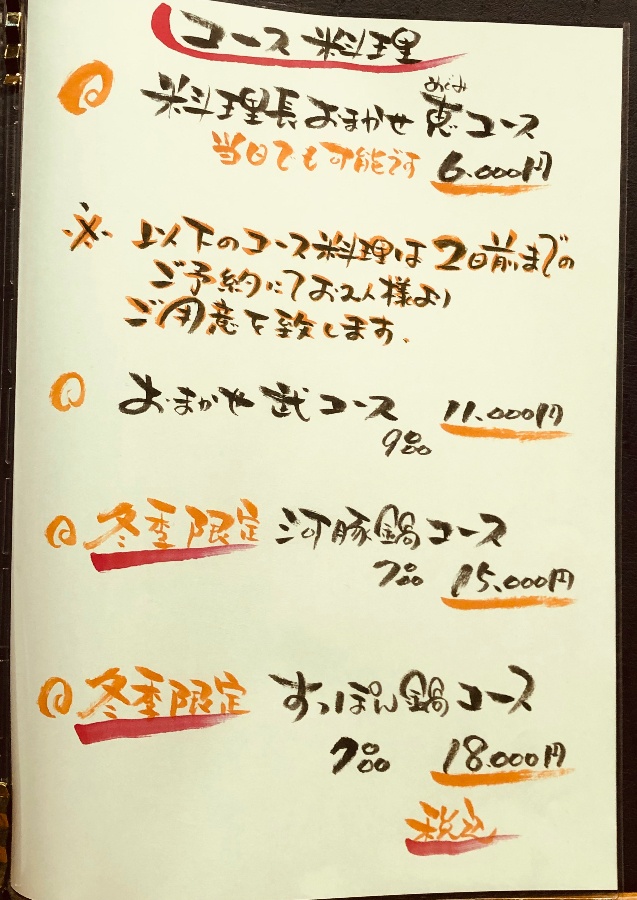 コース料理
めぐみ
料理長おまかせ恵コース
当日でも可能です 6.000円
※ 以下のコース料理は2日前までの
ご予約にてお2人様より
ご用意を致します.
おまかせ 武コース 11.000円
9品
冬季限定 河豚鍋コース
7品 15.000円
冬季限定 すっぽん鍋コース
7品 18.000円
税込